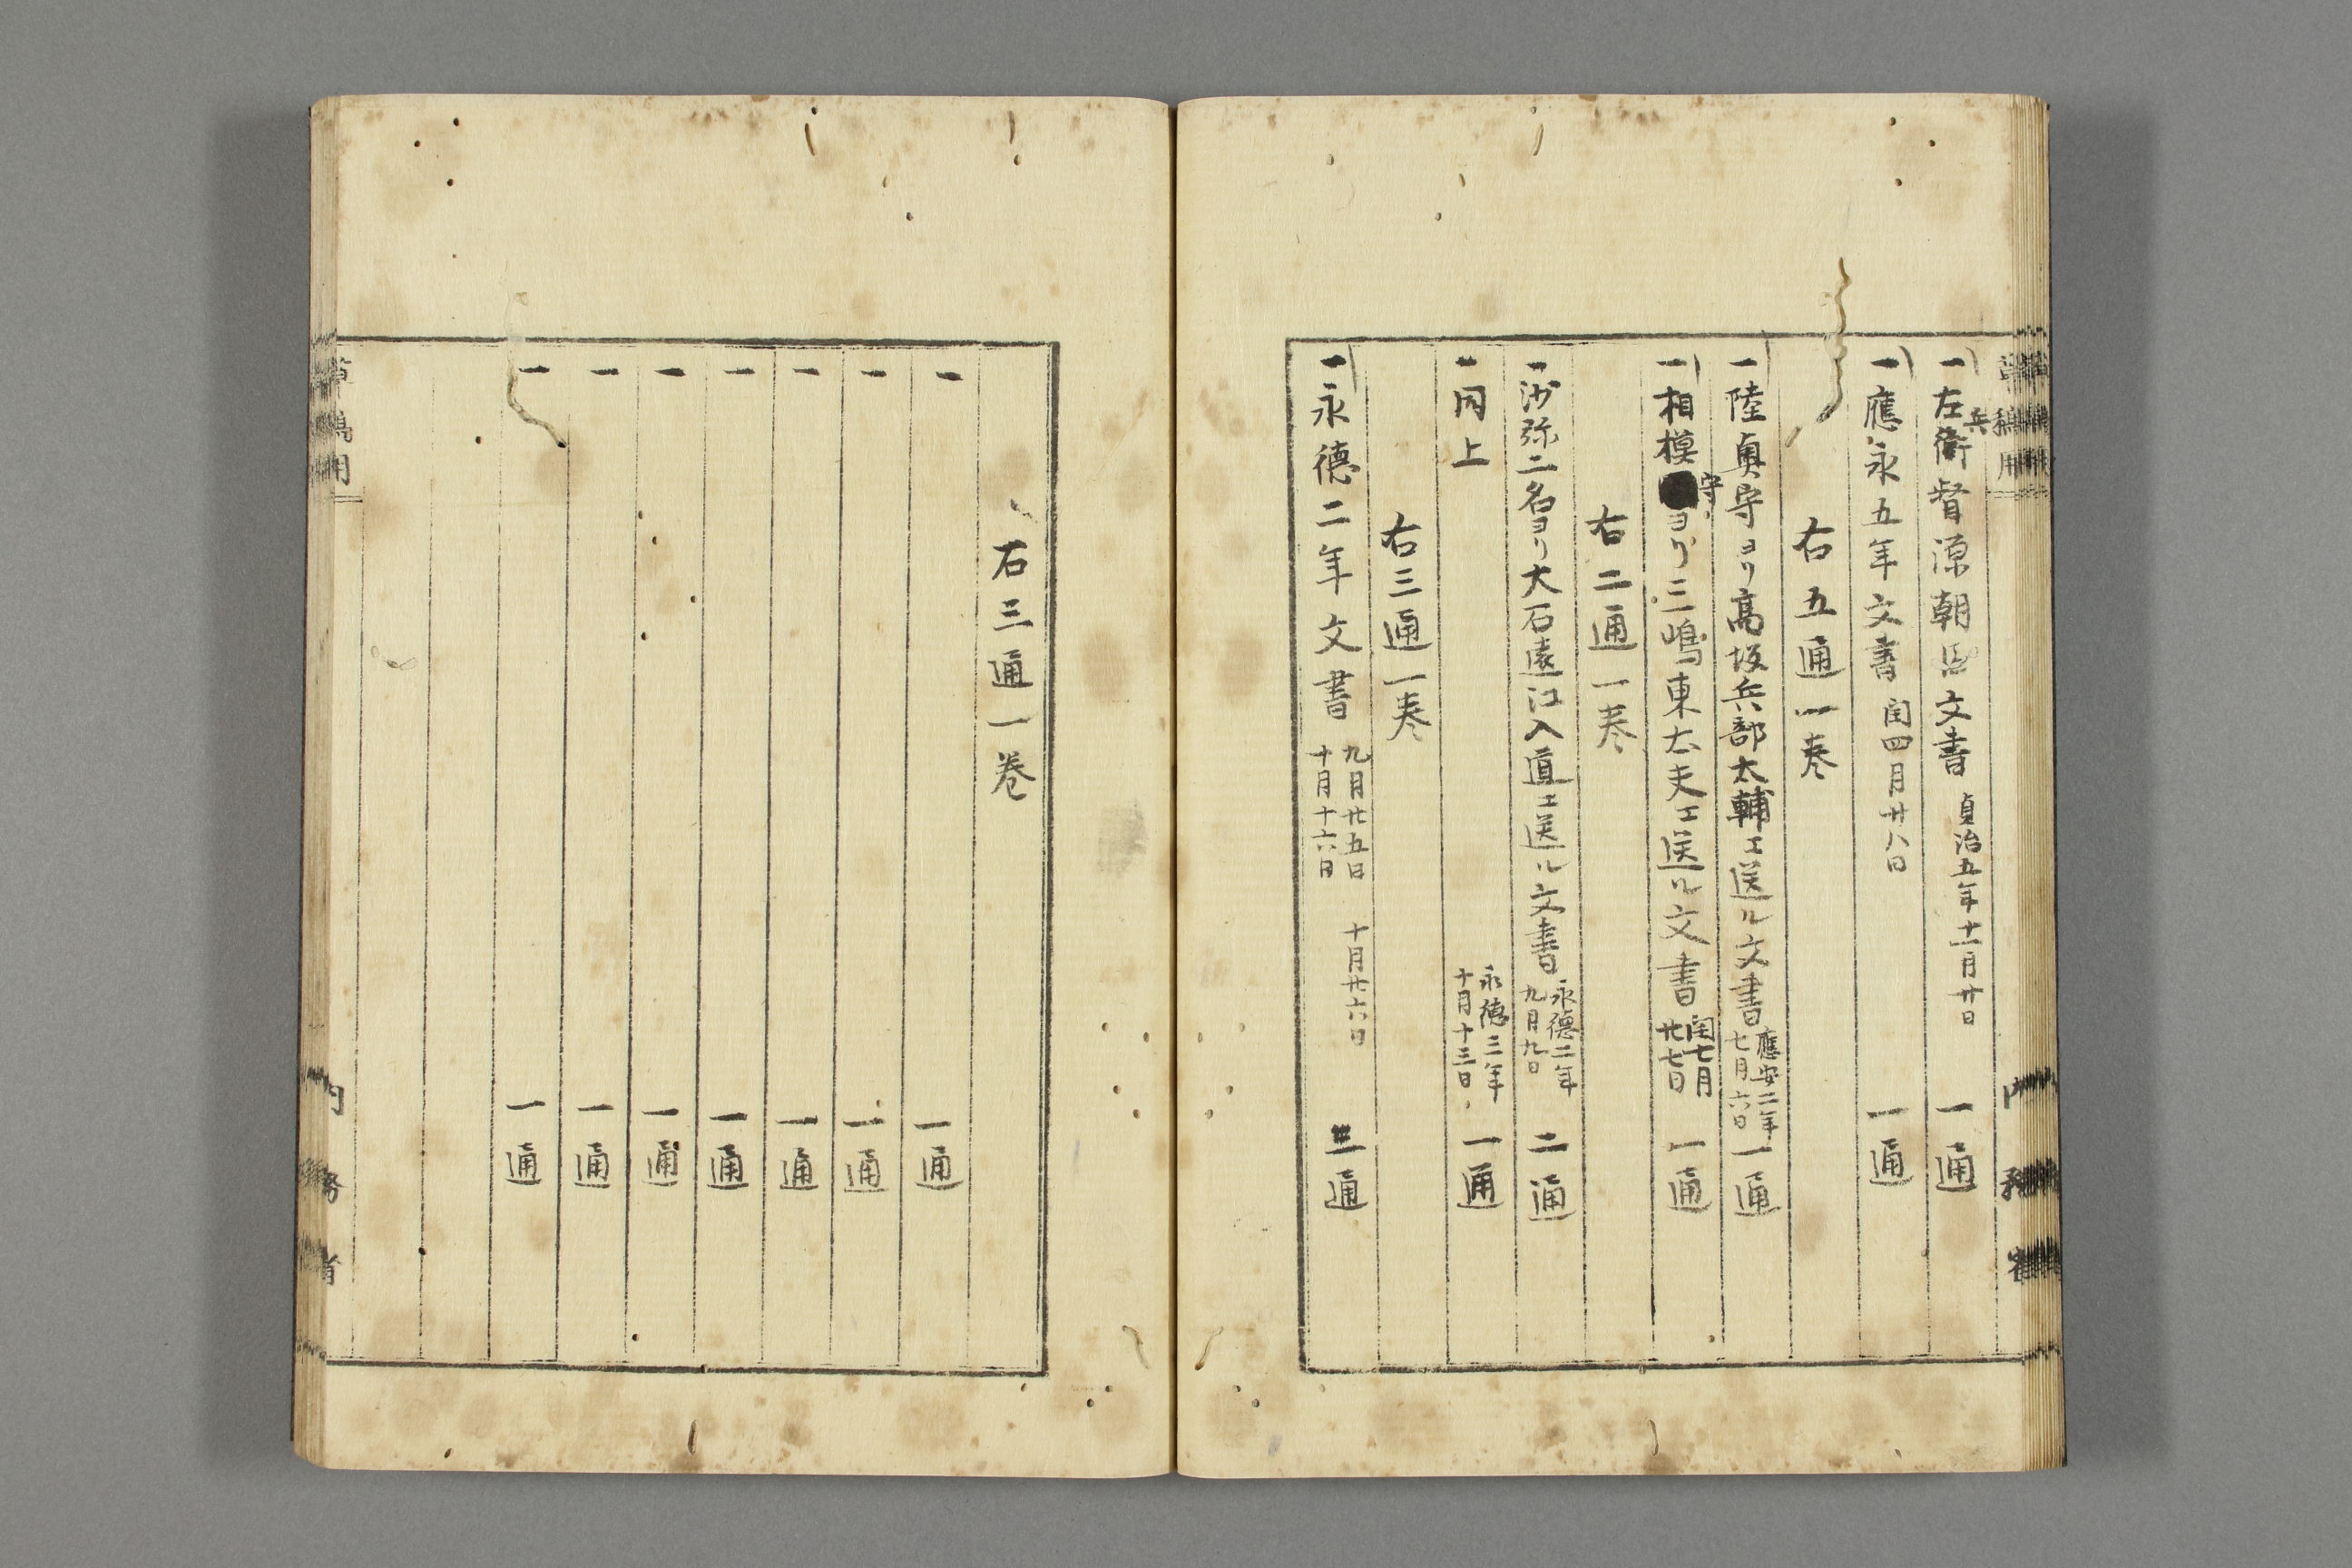 一左兵衛督源朝臣文書 貞治五年十一月廿日 一通
一應永五年文書 閏四月廿八日 一通
右五通一巻
一陸奥守ヨリ高坂兵部太輔エ送ル文書 應安二年七月六日 一通
一相模守ヨリ三嶋東太夫エ送ル文書 閏七月廿七日 一通
右二通一巻
一沙弥二名ヨリ大石遠江入道エ送ル文書 永德二年九月九日 二通
一同上 永德三年十月十三日 一通
右三通一巻
一永德二年文書 九月廿五日 十月十六日 十月廿六日 三通
内務省
右三通一巻
一 一通
一 一通
一 一通
一 一通
一 一通
一 一通
一 一通
草稿用
内務省